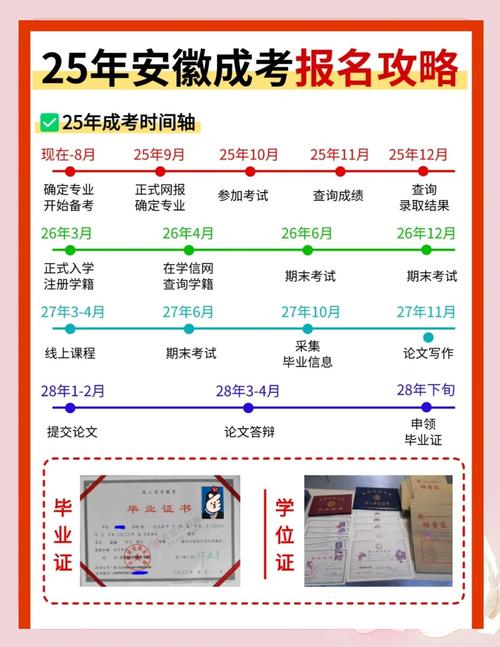 25年安徽成考报名攻略
25年成考时间轴
现在-8月 25年9月 25年10月 25年11月 25年12月
确定专业 正式网报 参加考试 查询成绩 查询
开始备考 确定专业 录取结果
26年3月 26年4月 26年6月 26年12月
正式入学 在学信网 期末考试 期末考试
注册学籍 查询学籍
27年3-4月 27年6月 27年10月 27年11月
线上课程 期末考试 采集 论文写作
毕业信息
28年1-2月 28年3-4月 28年下旬
提交论文 论文答辩 申领
毕业证
毕业证
成人高等教育
毕业证书
学位证
档案袋